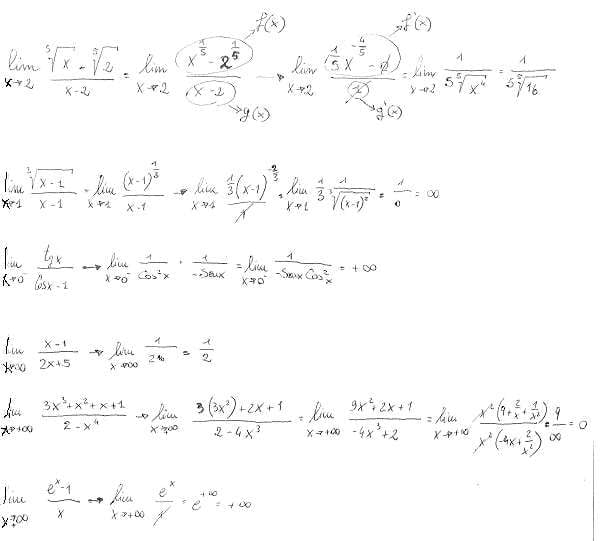 f(x) f'(x)
lim x→2 (⁵√x - ⁵√2)/(x-2) = lim x→2 (x^(1/5) - 2^(1/5))/(x-2) → lim x→2 (1/5 x^(-4/5) - 0)/1 = lim x→2 1/(5 ⁵√x⁴) = 1/(5 ⁵√16)
g(x) g'(x)
lim x→1 ³√(x-1)/(x-1) = lim x→1 (x-1)^(1/3)/(x-1) → lim x→1 (1/3 (x-1)^(-2/3))/1 = lim x→1 1/3 1/³√(x-1)² = 1/0 = ∞
lim x→0⁻ tgx/(Cosx-1) → lim x→0⁻ 1/Cos²x · 1/-Senx = lim x→0⁻ 1/(-Senx Cos²x) = +∞
lim x→∞ (x-1)/(2x+5) → lim x→∞ 1/2 = 1/2
lim x→+∞ (3x³+x²+x+1)/(2-x⁴) → lim x→∞ (3(3x²)+2x+1)/(2-4x³) = lim x→+∞ (9x²+2x+1)/(-4x³+2) = lim x→+∞ x²(9+2/x+1/x²)/x²(-4x+2/x²) = 9/∞ = 0
lim x→+∞ (eˣ-1)/x → lim x→+∞ eˣ/1 = e^(+∞) = +∞